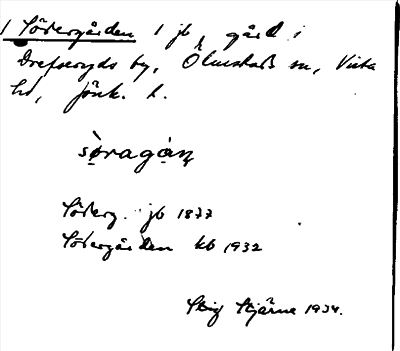 1 Södergården 1 jb, gård i
Drefseryds by, Ölmstads sn, Vista
hd, Jönk. l.
sǿragàṇ
Söderg. jb 1877
Södergården kb 1932
Stig Stjärne 1934.